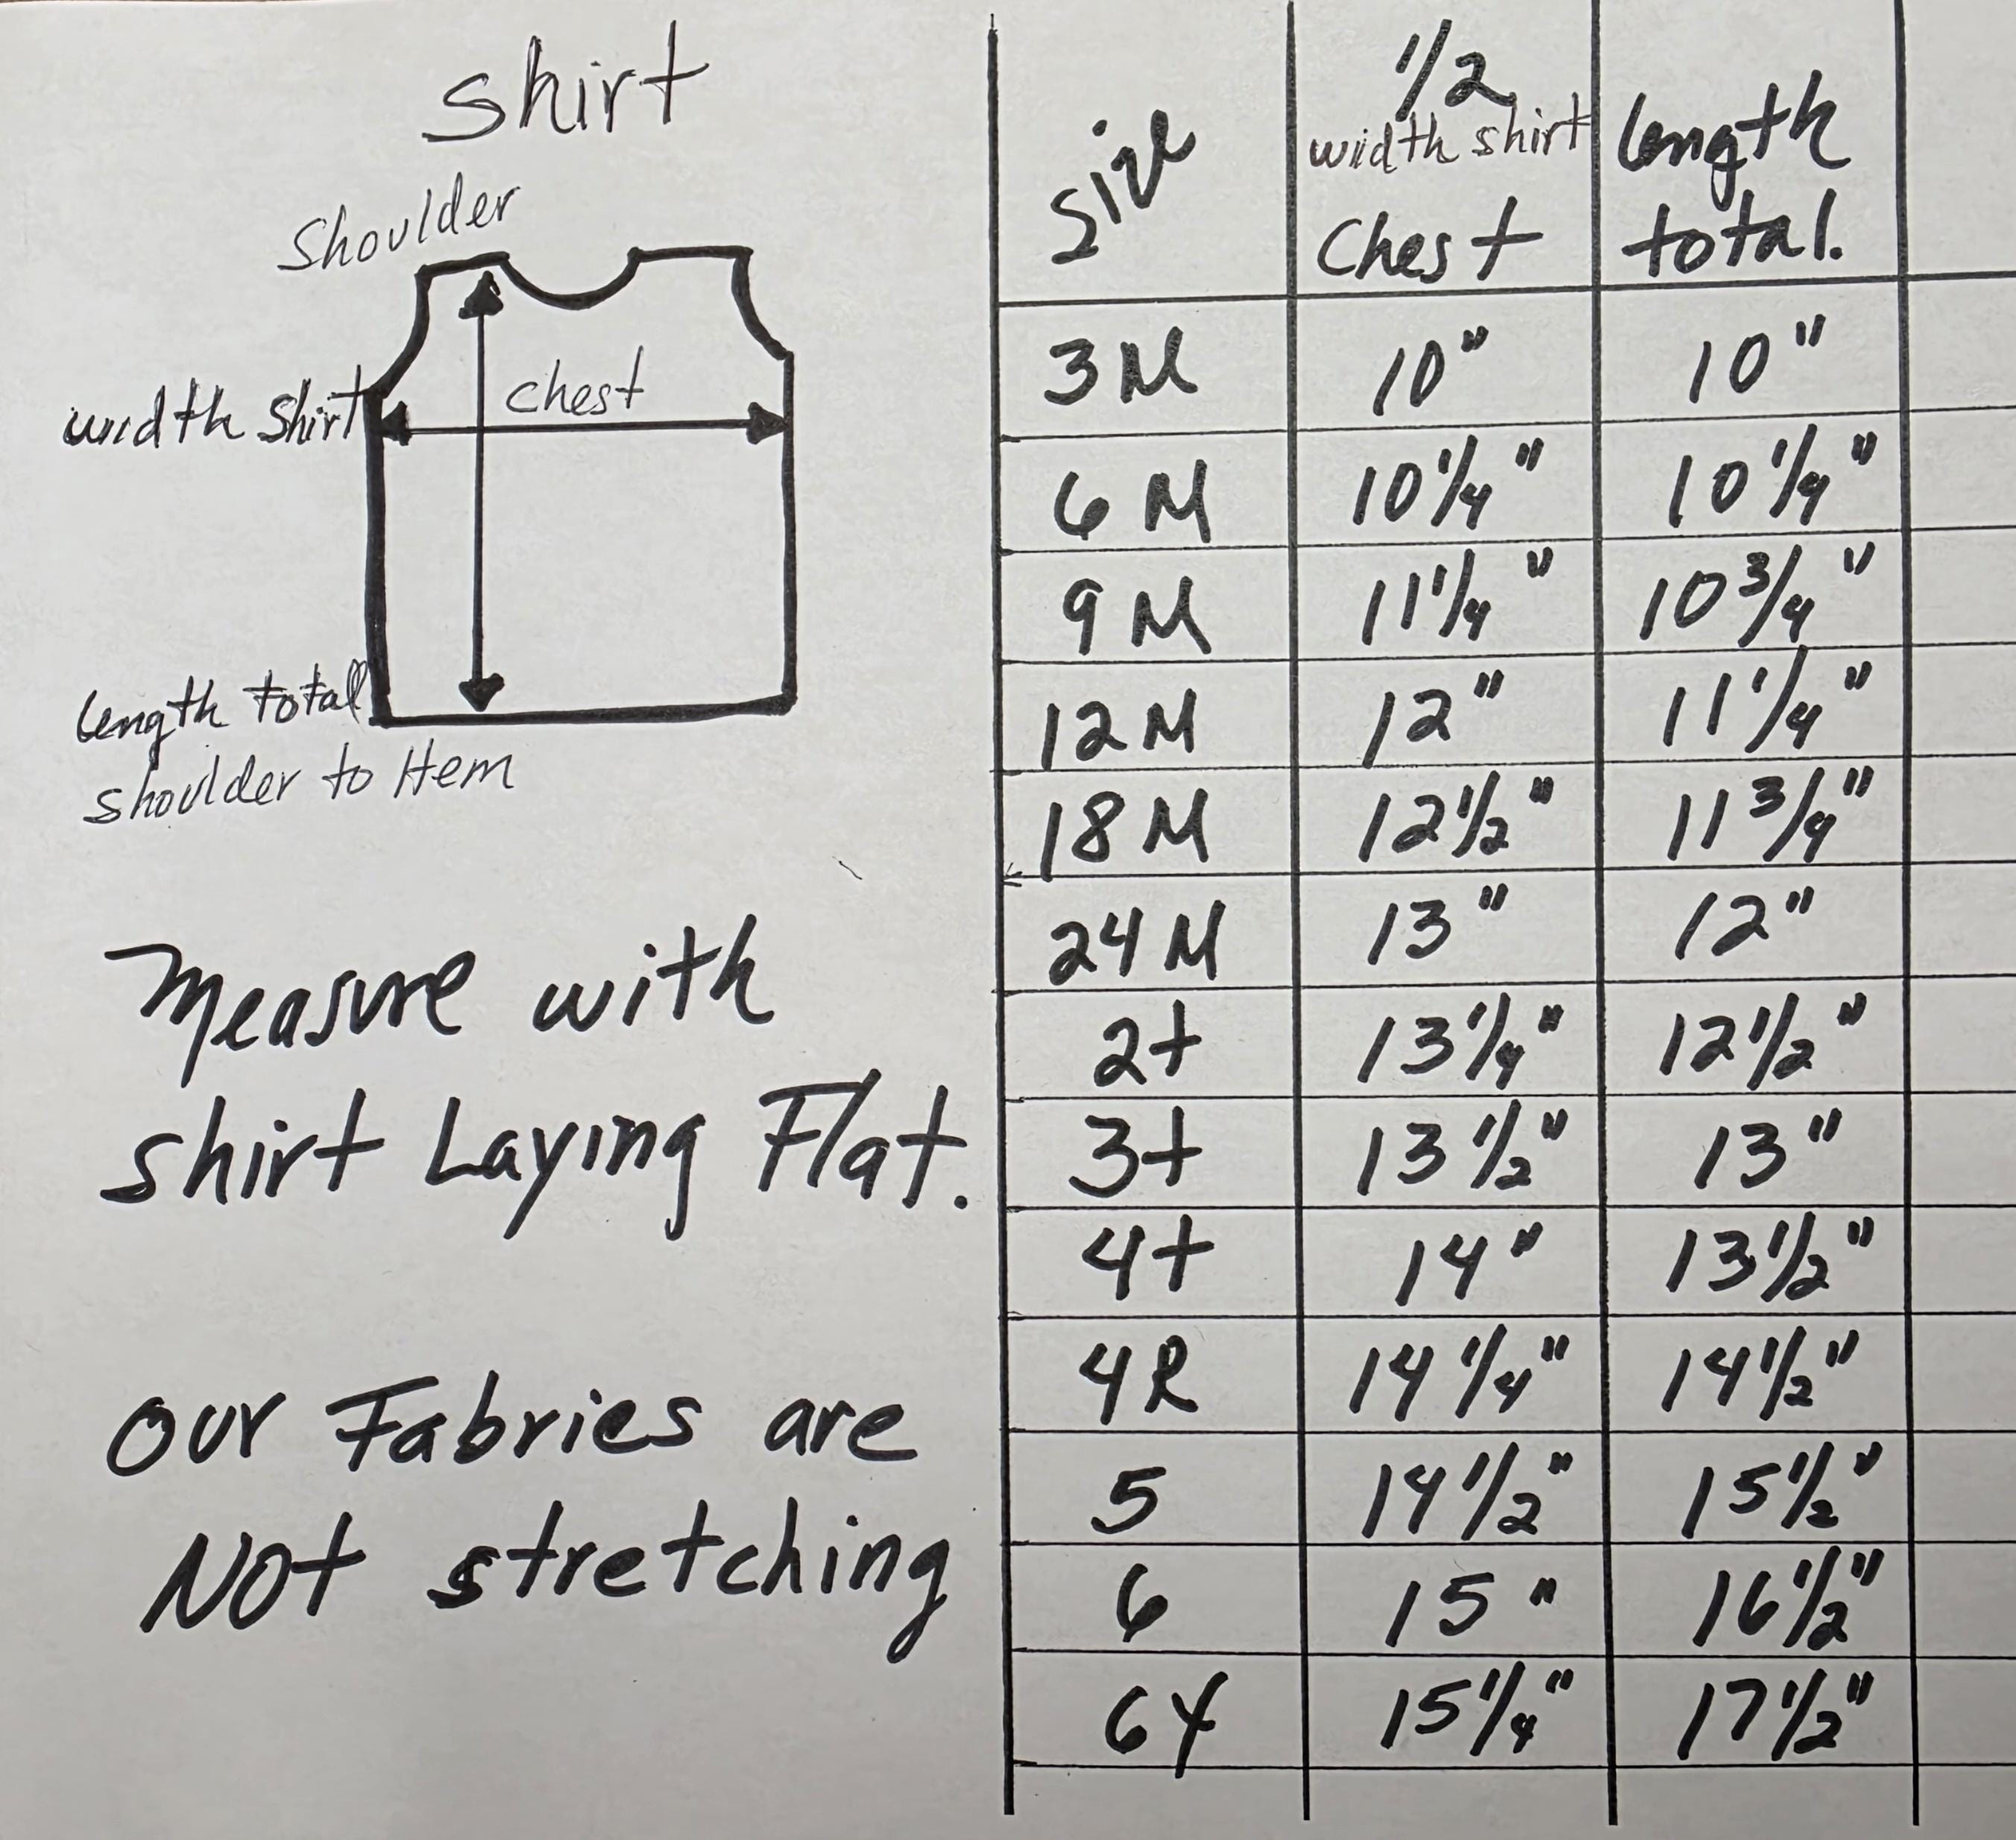 shirt
Shoulder
width shirt
chest
length total
shoulder to Hem
Measure with
shirt Laying Flat.
Our Fabries are
Not stretching
Size 1/2 width shirt Chest length total.
3M 10" 10"
6M 10 1/4" 10 1/4"
9M 11 1/4" 10 3/4"
12M 12" 11 1/4"
18M 12 1/2" 11 3/4"
24M 13" 12"
2t 13 1/4" 12 1/2"
3t 13 1/2" 13"
4t 14" 13 1/2"
4R 14 1/4" 14 1/2"
5 14 1/2" 15 1/2"
6 15" 16 1/2"
6Y 15 1/4" 17 1/2"